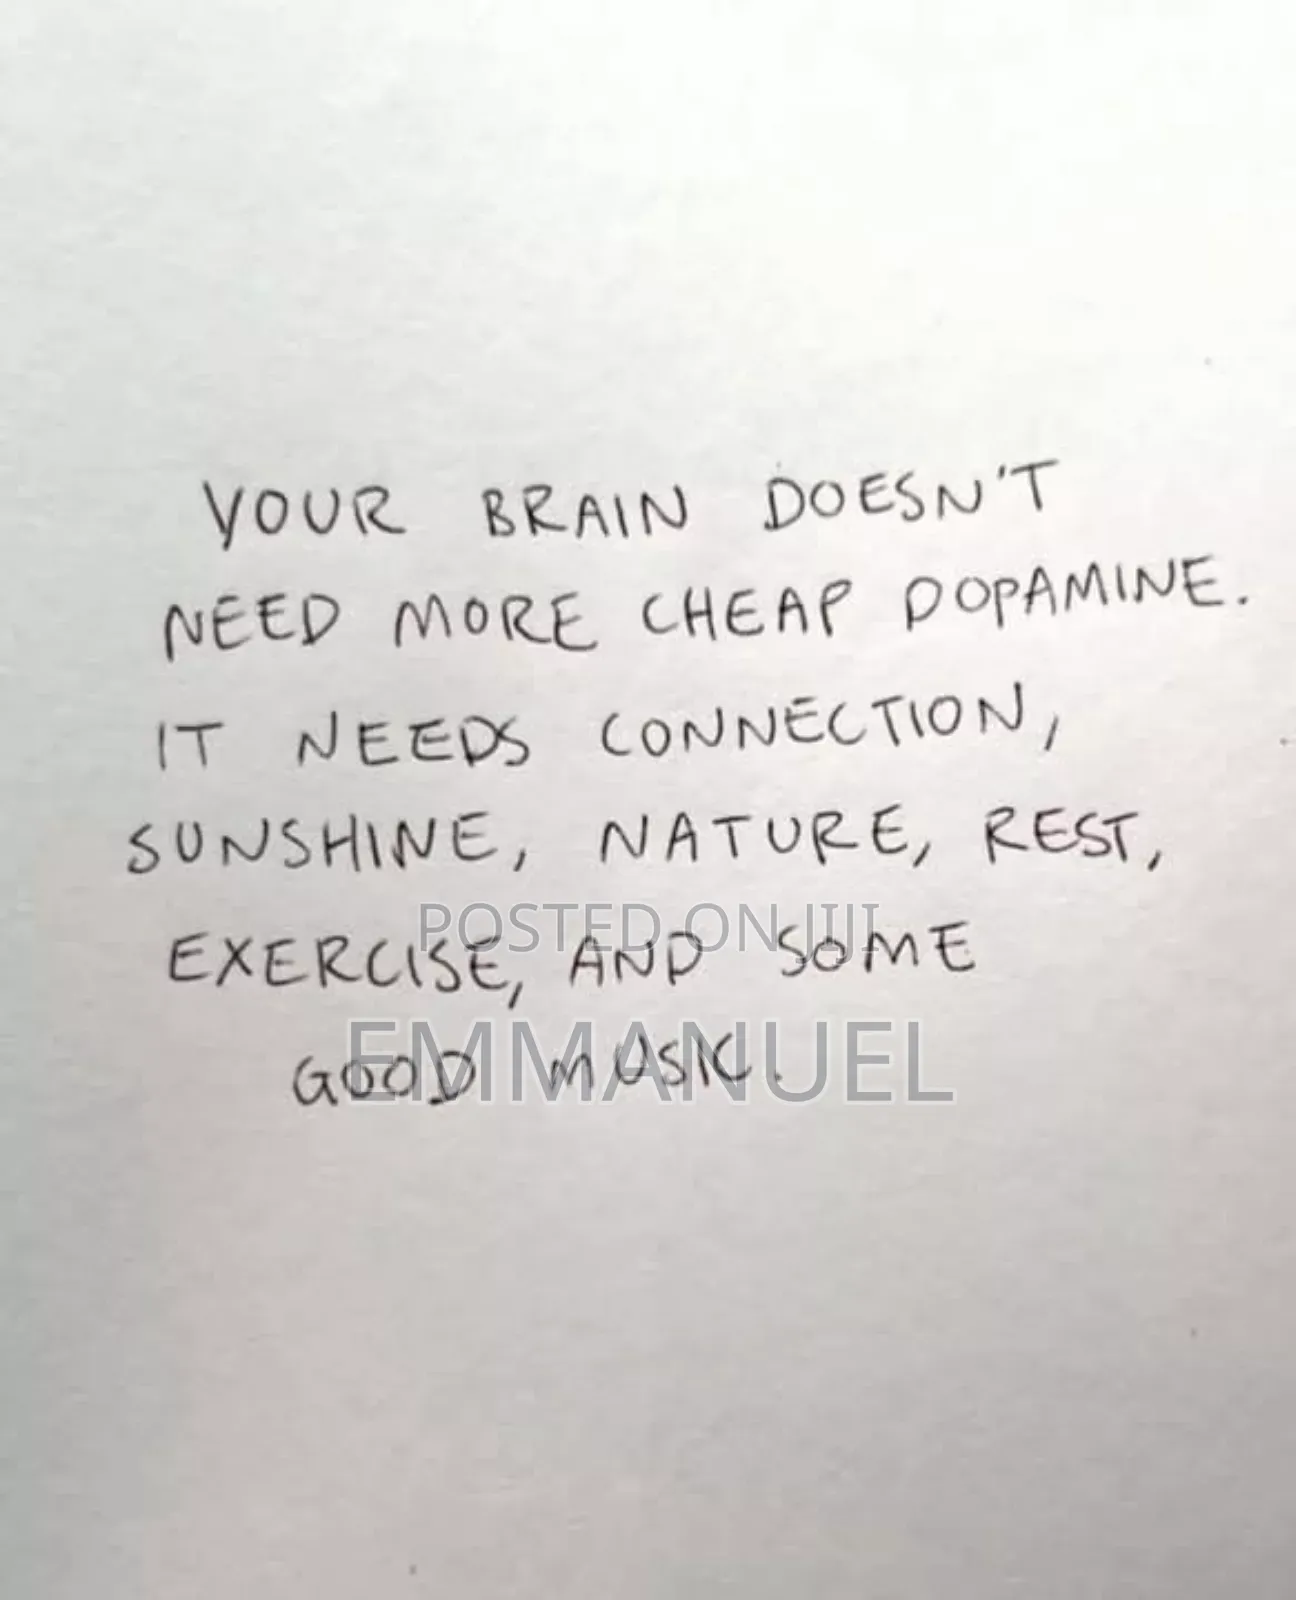 YOUR BRAIN DOESN'T
NEED MORE CHEAP DOPAMINE.
IT NEEDS CONNECTION,
SUNSHINE, NATURE, REST,
EXERCISE, AND SOME
POSTED ON JIJI
GOOD MUSIC.
EMMANUEL